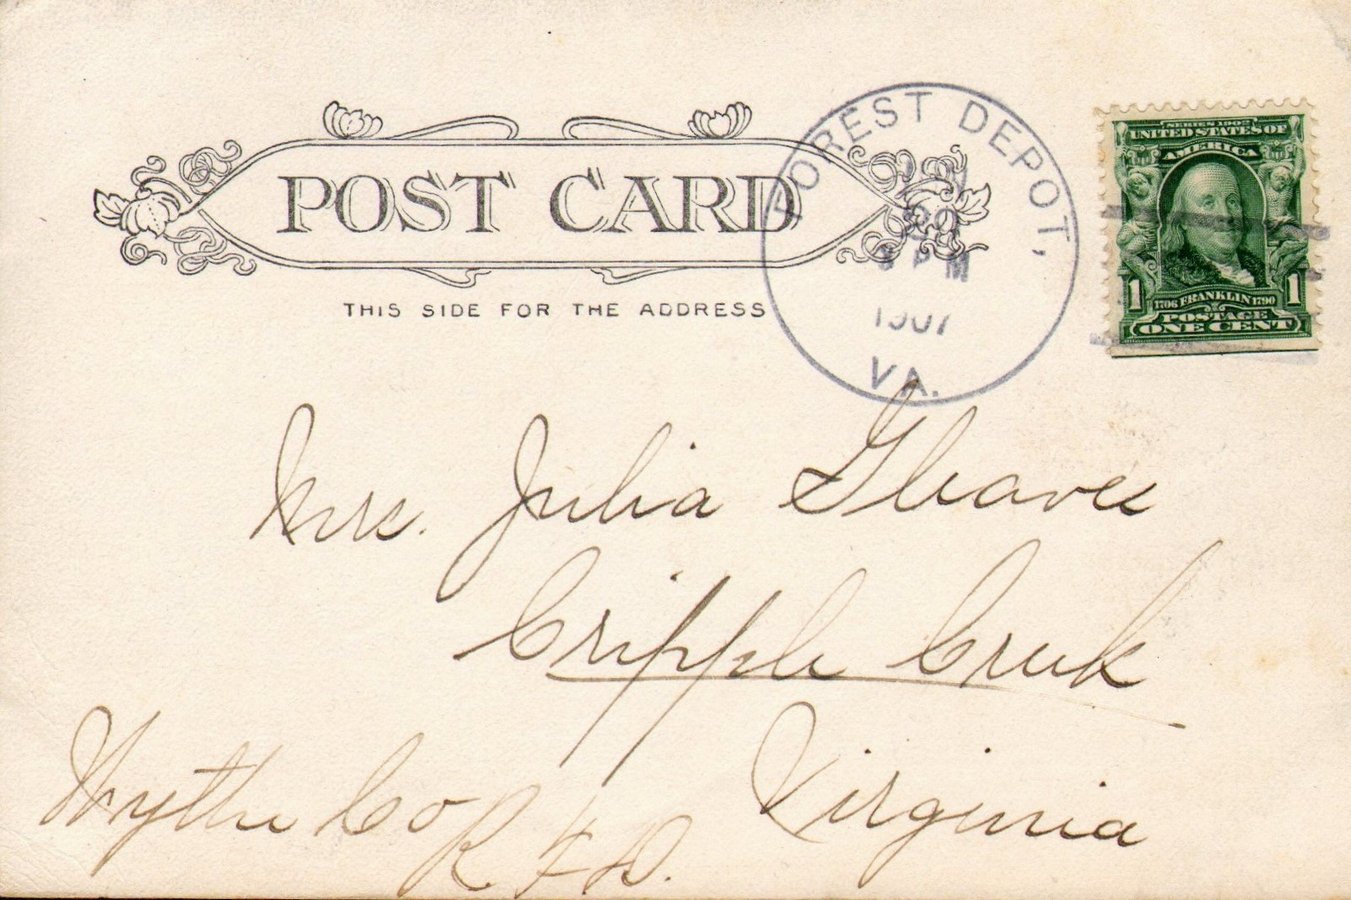 POST CARD
THIS SIDE FOR THE ADDRESS
FOREST DEPOT,
PM
1907
VA.
SERIES 1902
UNITED STATES OF
AMERICA
1 1706 FRANKLIN 1790 1
POSTAGE
ONE CENT
Mrs. Julia Gleaves
Cripple Creek
Virginia
Wythe Co R.F.D.